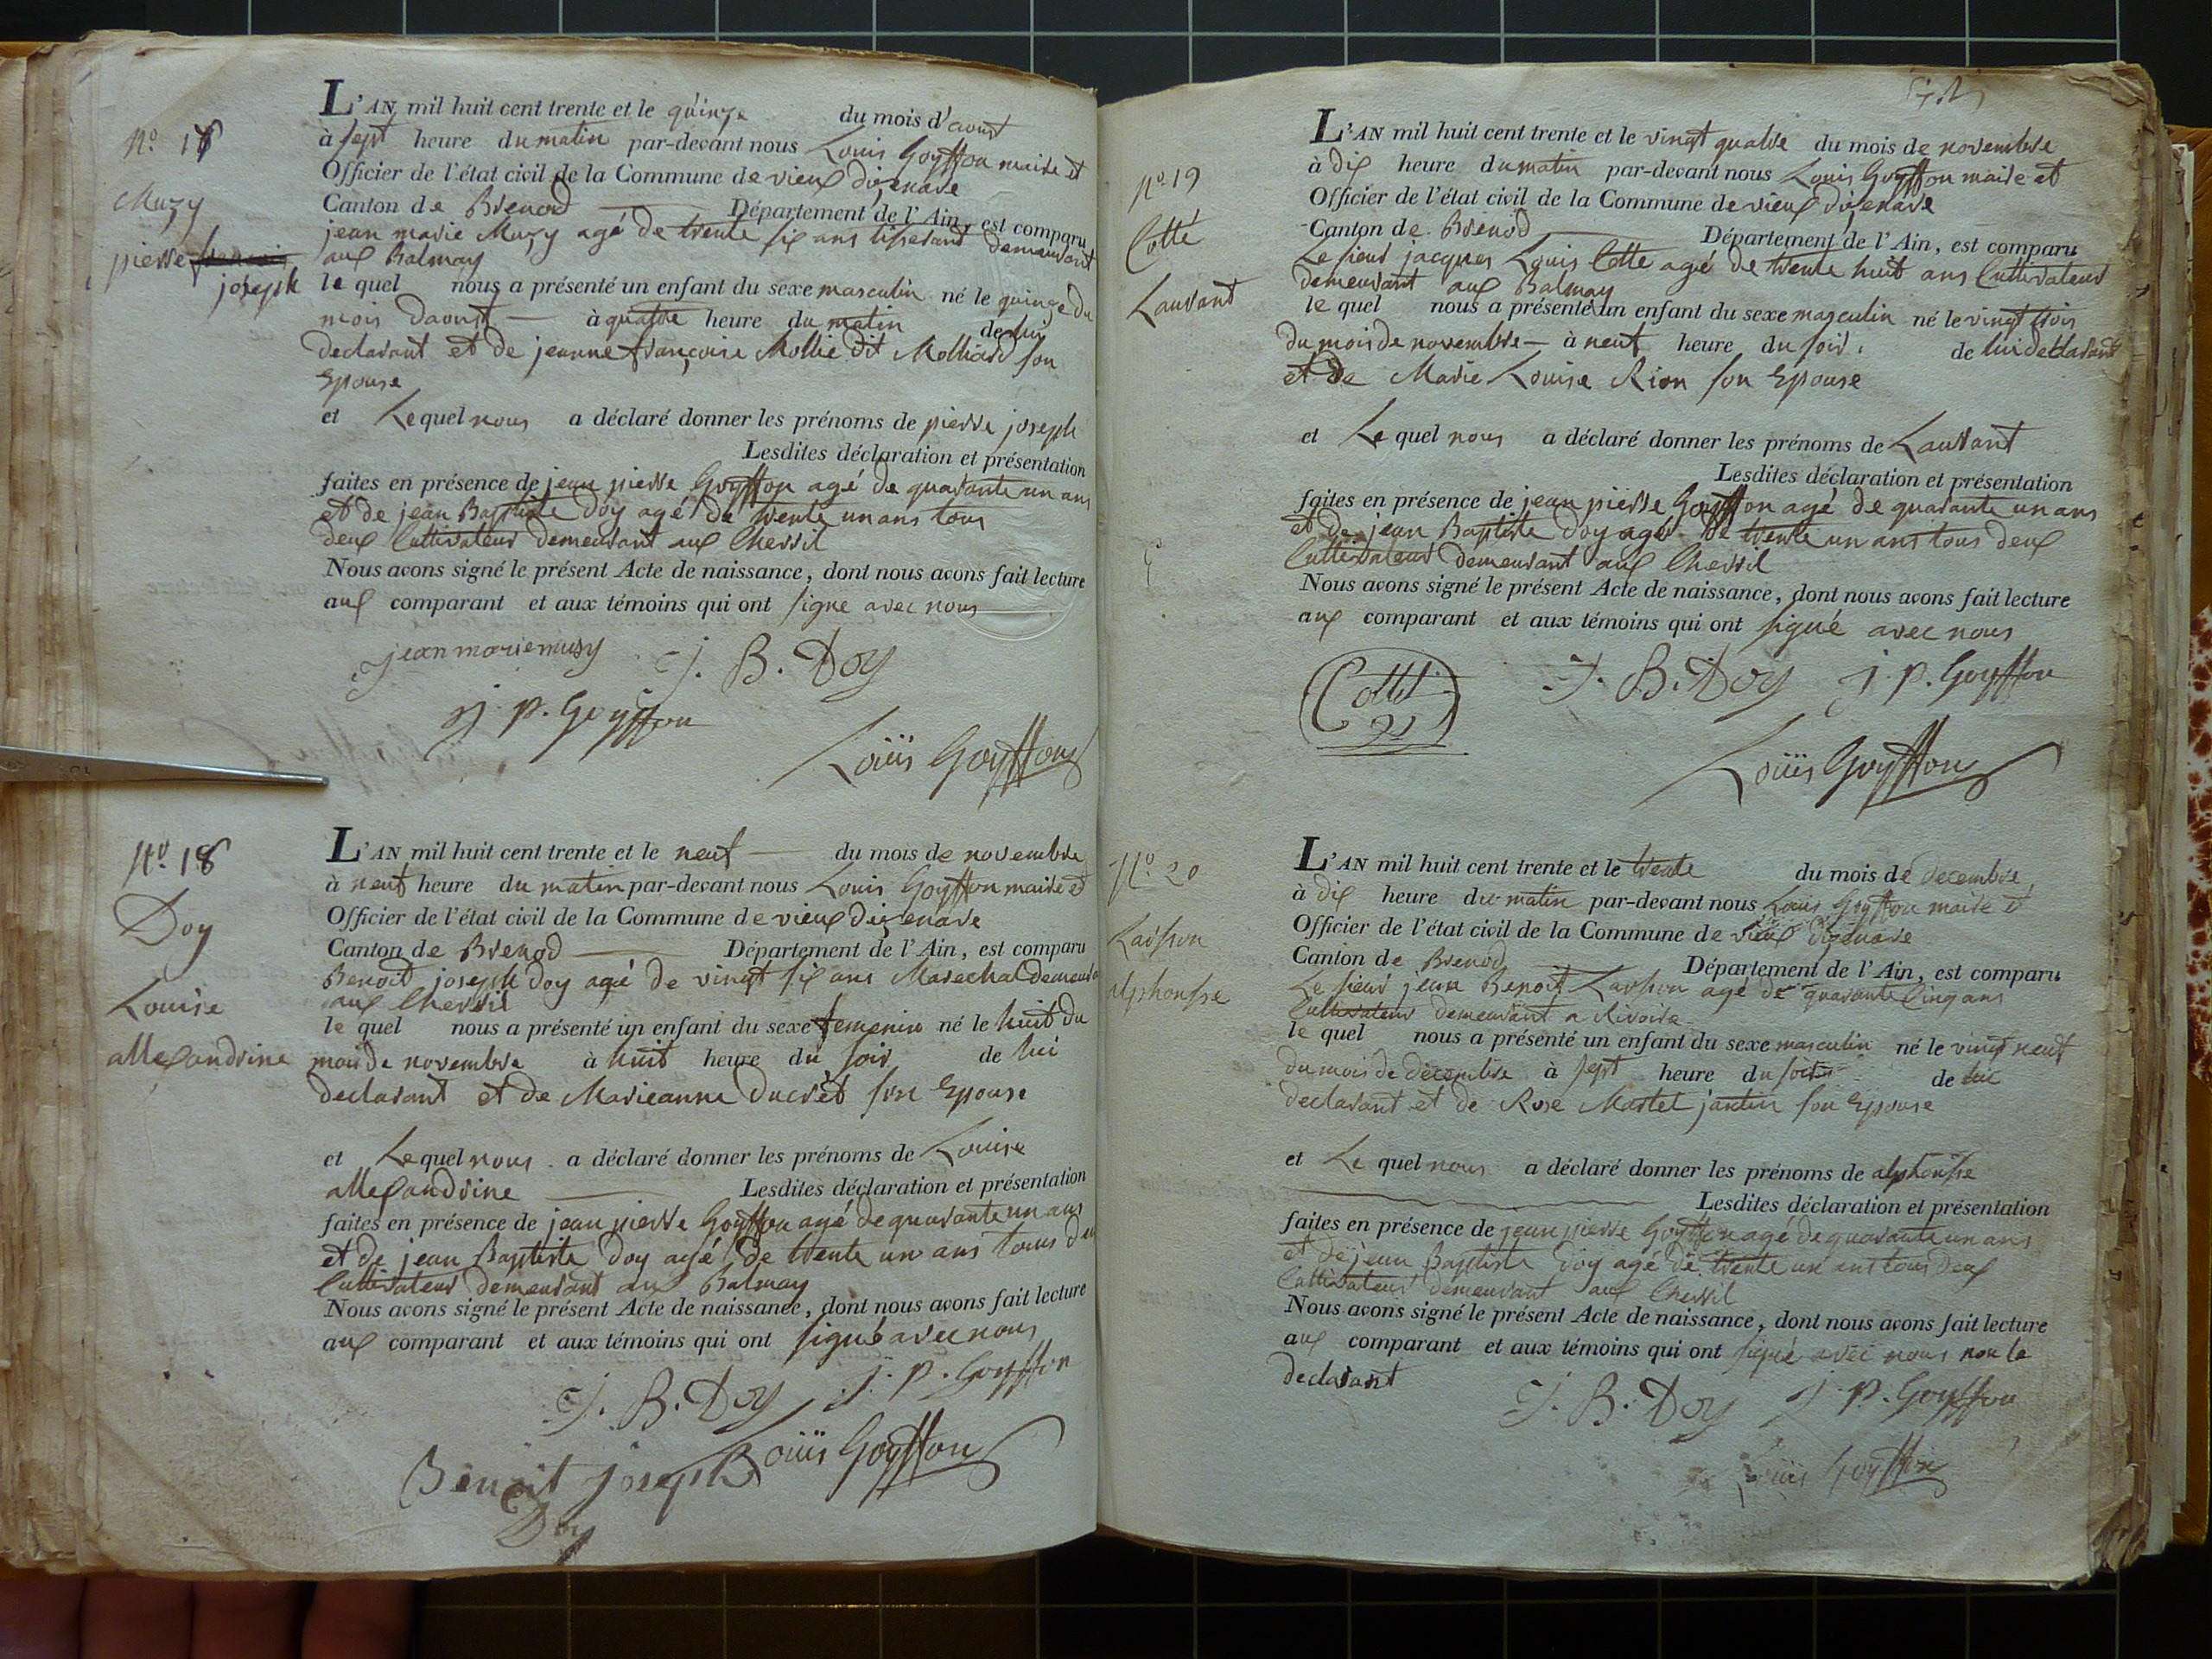 N.º 17
Muzy
pierre francois
joseph
L'AN mil huit cent trente et le quinze du mois d'aoust
à sept heure du matin par-devant nous Louis Goyffon maire et
Officier de l'état civil de la Commune de vieux dizenave
Canton de Brenod Département de l'Ain, est comparu
jean marie Muzy agé de trente six ans tisserand demeurant
aux Balmay
le quel nous a présenté un enfant du sexe masculin né le quinze du
mois daoust à quatre heure du matin de lui
declarant et de jeanne françoise Mollie dit Molliard son
Epouse
et Lequel nous a déclaré donner les prénoms de pierre joseph
Lesdites déclaration et présentation
faites en présence de jean pierre Goyffon agé de quarante un ans
et de jean Baptiste Doy agé de trente un ans tous
deux Cultivateur demeurant aux Chevril
Nous avons signé le présent Acte de naissance, dont nous avons fait lecture
aux comparant et aux témoins qui ont signe avec nous
jean marie musy J. B. Doy
j. p. Goyffon
Loüis Goyffon
N.º 18
Doy
Louise
allexandrine
L'AN mil huit cent trente et le neuf du mois de novembre
à neuf heure du matin par-devant nous Louis Goyffon maire et
Officier de l'état civil de la Commune de vieux dizenave
Canton de Brenod Département de l'Ain, est comparu
Benoit joseph Doy agé de vingt six ans Marechal
aux Chevril
le quel nous a présenté un enfant du sexe femenin né le huit du
mois de novembre à huit heure du soir de lui
declarant et de Marieanne Ducret son Epouse
et Lequel nous a déclaré donner les prénoms de Louise
allexandrine Lesdites déclaration et présentation
faites en présence de jean pierre Goyffon agé de quarante un ans
et de jean Baptiste Doy agé de trente un ans tous
Cultivateur demeurant aux Balmay
Nous avons signé le présent Acte de naissance, dont nous avons fait lecture
aux comparant et aux témoins qui ont signé avec nous
J. B. Doy j. p. Goyffon
Benoit joseph Loüis Goyffon
Doy
N.º 19
Cotte
Laurant
L'AN mil huit cent trente et le vingt quatre du mois de novembre
à dix heure du matin par-devant nous Louis Goyffon maire et
Officier de l'état civil de la Commune de vieux dizenave
Canton de Brenod Département de l'Ain, est comparu
Le sieur jacques Louis Cotte agé de trente huit ans Cultivateur
demeurant aux Balmay
le quel nous a présenté un enfant du sexe masculin né le vingt trois
du mois de novembre à neuf heure du soir de lui declarant
et de Marie Louise Rion son Epouse
et Le quel nous a déclaré donner les prénoms de Laurant
Lesdites déclaration et présentation
faites en présence de jean pierre Goyffon agé de quarante un ans
et de jean Baptiste Doy agé de trente un ans tous deux
Cultivateur demeurant aux Chevril
Nous avons signé le présent Acte de naissance, dont nous avons fait lecture
aux comparant et aux témoins qui ont signé avec nous
J. B. Doy j. p. Goyffon
Loüis Goyffon
N.º 20
alphonsse
L'AN mil huit cent trente et le trente du mois de decembre
à dix heure du matin par-devant nous Louis Goyffon maire et
Officier de l'état civil de la Commune de vieux dizenave
Canton de Brenod Département de l'Ain, est comparu
Le sieur jean Benoit agé de quarante Cinq ans
Cultivateur demeurant a Rivoire
le quel nous a présenté un enfant du sexe masculin né le vingt neuf
du mois de decembre à sept heure du soir de lui
declarant et de Rose Martel jantin son Epouse
et Le quel nous a déclaré donner les prénoms de alphonsse
Lesdites déclaration et présentation
faites en présence de jean pierre Goyffon agé de quarante un ans
et de jean Baptiste Doy agé de trente un ans tous deux
Cultivateur demeurant aux Chevril
Nous avons signé le présent Acte de naissance, dont nous avons fait lecture
aux comparant et aux témoins qui ont signé avec nous non le
declarant
J. B. Doy j. p. Goyffon
Loüis Goyffon